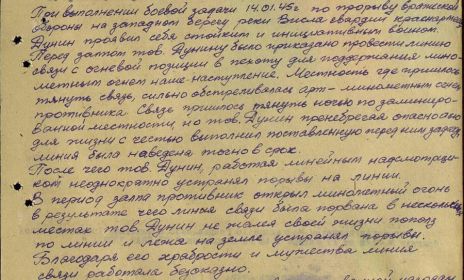 При выполнении боевой задачи 14.01.45г по прорыву вражеской
обороны на западном берегу реки Висла гвардии красноармеец
Дунин проявил себя стойким и инициативным воином.
Перед залпом тов. Дунину было приказано провести линию
связи с огневой позиции в пехоту для поддержания мино-
метным огнем наше наступление. Местность где пришлось
тянуть связь, сильно обстреливалась арт-минометным огнем
противника. Связь пришлось тянуть ночью по заминиро-
ванной местности, но тов. Дунин пренебрегая опасно
для жизни с честью выполнил поставленную перед ним задачу,
линия была наведена точно в срок.
После чего тов. Дунин, работая линейным надсмотрщи-
ком неоднократно устранял порывы на линии.
В период залпа противник открыл минометный огонь
в результате чего линия связи была порвана в нескольких
местах тов. Дунин не жалея своей жизни пополз
по линии и лежа на земле устранял порывы.
Благодаря его храбрости и мужества линия
связи работала безотказно.